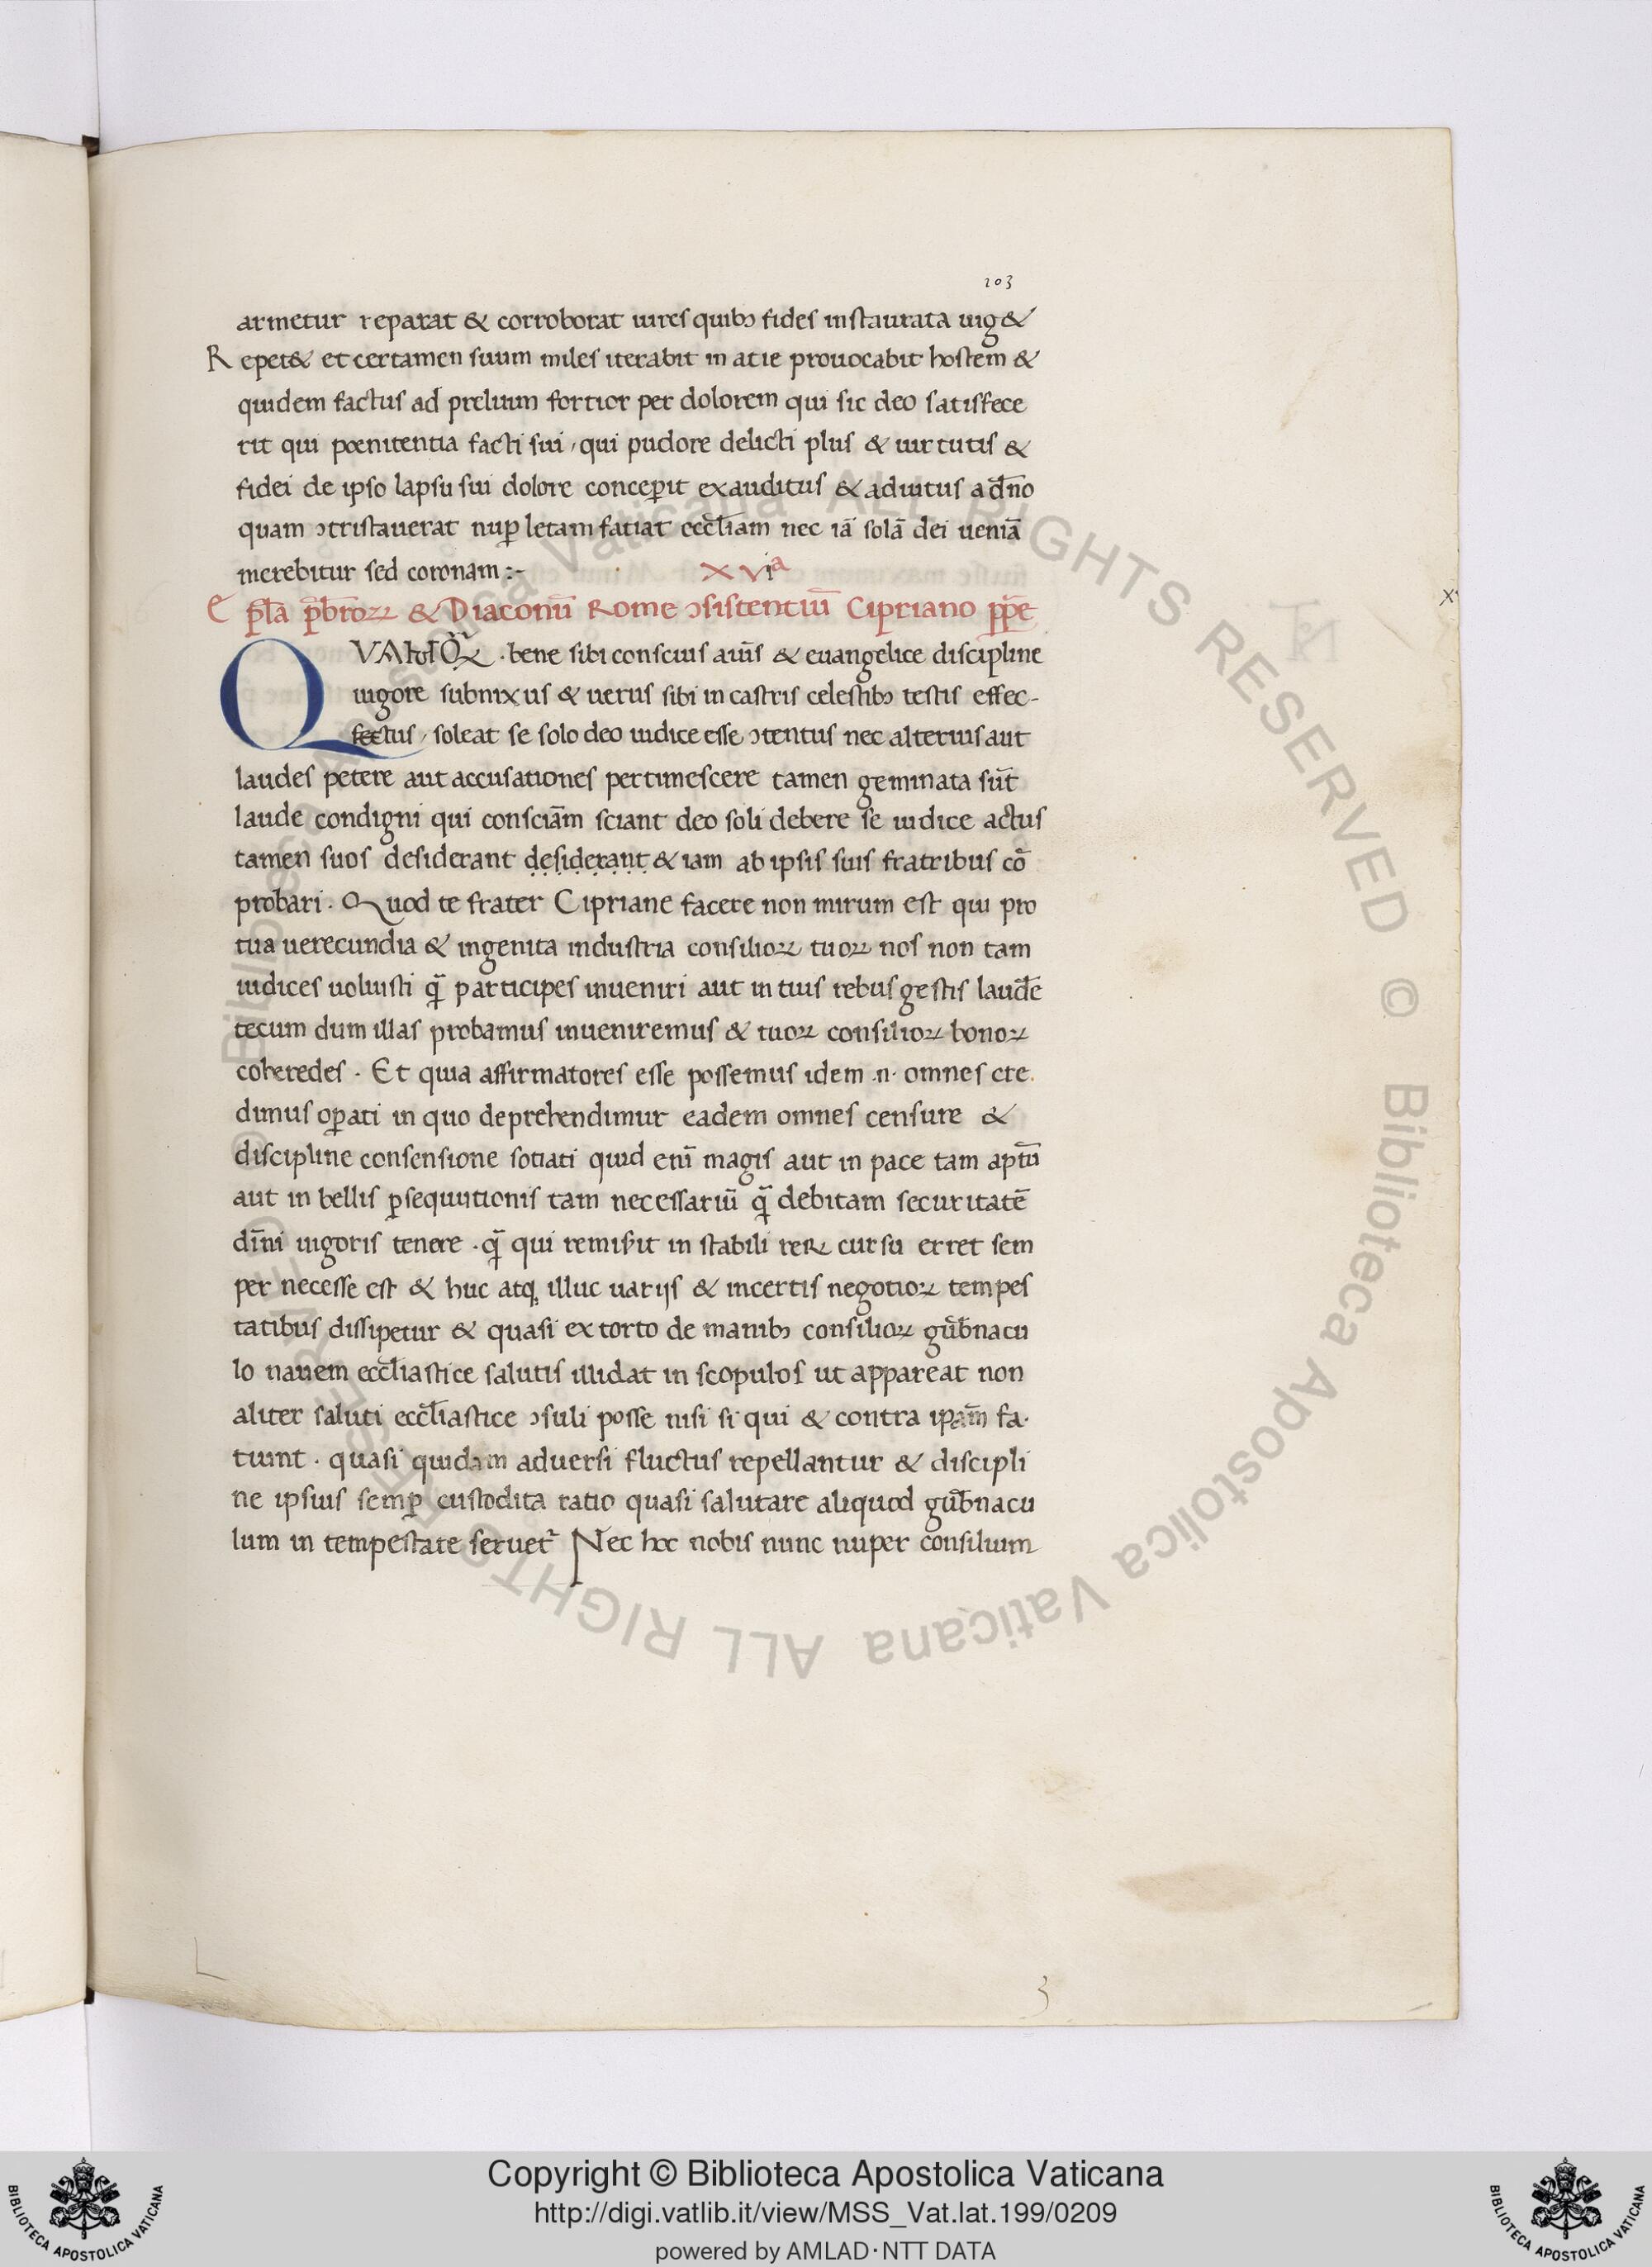 103
armetur reparat & corroborat uires quibꝯ fides instaurata uig&
Repet& et certamen suum miles iterabit in atie prouocabit hostem &
quidem factus ad prelium fortior per dolorem qui sic deo satisfece
rit qui pœnitentia facti sui, qui pudore delicti plus & uirtutis &
fidei de ipso lapsu sui dolore conceꝑit exauditus & adiutus a dn̄o
quam ꝯtristauerat nuꝑ letam fatiat eccl̄iam nec iā solā dei ueniā
merebitur sed coronam :~
XVIª
Ep̄la p̄br̄oꝝ & Diaconū Rome ꝯsistentiū Cipriano pp̄e
X
QVAMQ̄ꝫ . bene sibi conscius aiu̅s & euangelice discipline
uigore subnixus & uerus sibi in castris celestibꝯ testis effec-
fectus, soleat se solo deo iudice esse ꝯtentus nec alterius aut
laudes petere aut accusationes pertimescere tamen geminata sūt
laude condigni qui consciām sciant deo soli debere se iudice actus
tamen suos desiderant desiderant & iam ab ipsis suis fratribus cō
probari. Quod te frater Cipriane facere non mirum est qui pro
tua uerecundia & ingenita industria consilioꝝ tuoꝝ nos non tam
iudices uoluisti q̄ participes inueniri aut in tuis rebus gestis laudē
tecum dum illas probamus inueniremus & tuoꝝ consilioꝝ bonoꝝ
coheredes . Et quia affirmatores esse possemus idem .n. omnes cre.
dimus oꝑati in quo deprehendimur eadem omnes censure &
discipline consensione sotiati quid enī magis aut in pace tam aptū
aut in bellis ꝑsequutionis tam necessariū q̄ debitam securitatē
diīni uigoris tenere . q̄ qui remiſit in stabili reꝝ cursu erret sem
per necesse est & huc atqꝫ illuc uarijs & incertis negotioꝝ tempes
tatibus dissipetur & quasi extorto de manibꝯ consilioꝝ gub̄nacu
lo nauem eccl̄iastice salutis illidat in scopulos ut appareat non
aliter saluti eccl̄iastice ꝯsuli posse nisi si qui & contra ipām fa.
tiunt . quasi quidam aduersi fluctus repellantur & discipli
ne ipsius semꝑ custodita ratio quasi salutare aliquod gub̄nacu
lum in tempestate seruet᷑ Nec hoc nobis nunc nuper consilium
3
© Biblioteca Apostolica Vaticana ALL RIGHTS RESERVED © Biblioteca Apostolica Vaticana ALL RIGHTS RESERVED
Copyright © Biblioteca Apostolica Vaticana
http://digi.vatlib.it/view/MSS_Vat.lat.199/0209
powered by AMLAD·NTT DATA
BIBLIOTECA APOSTOLICA VATICANA
BIBLIOTECA APOSTOLICA VATICANA